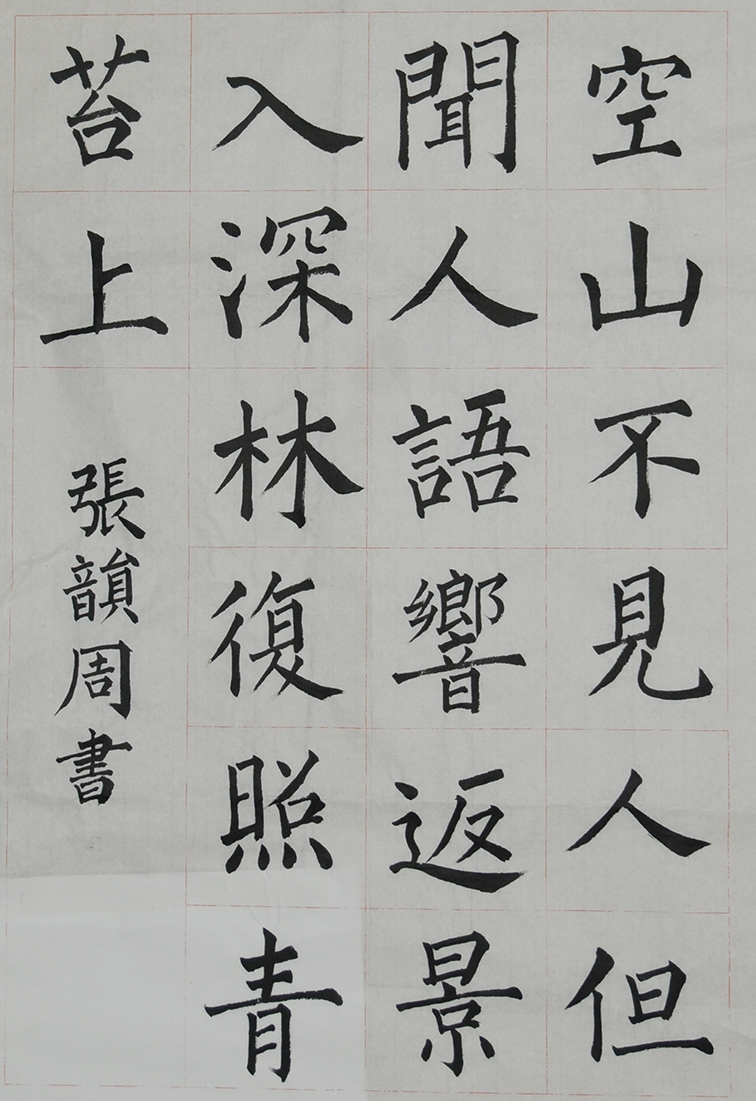 空山不見人但
聞人語響返景
入深林復照青
苔上
張韻周書